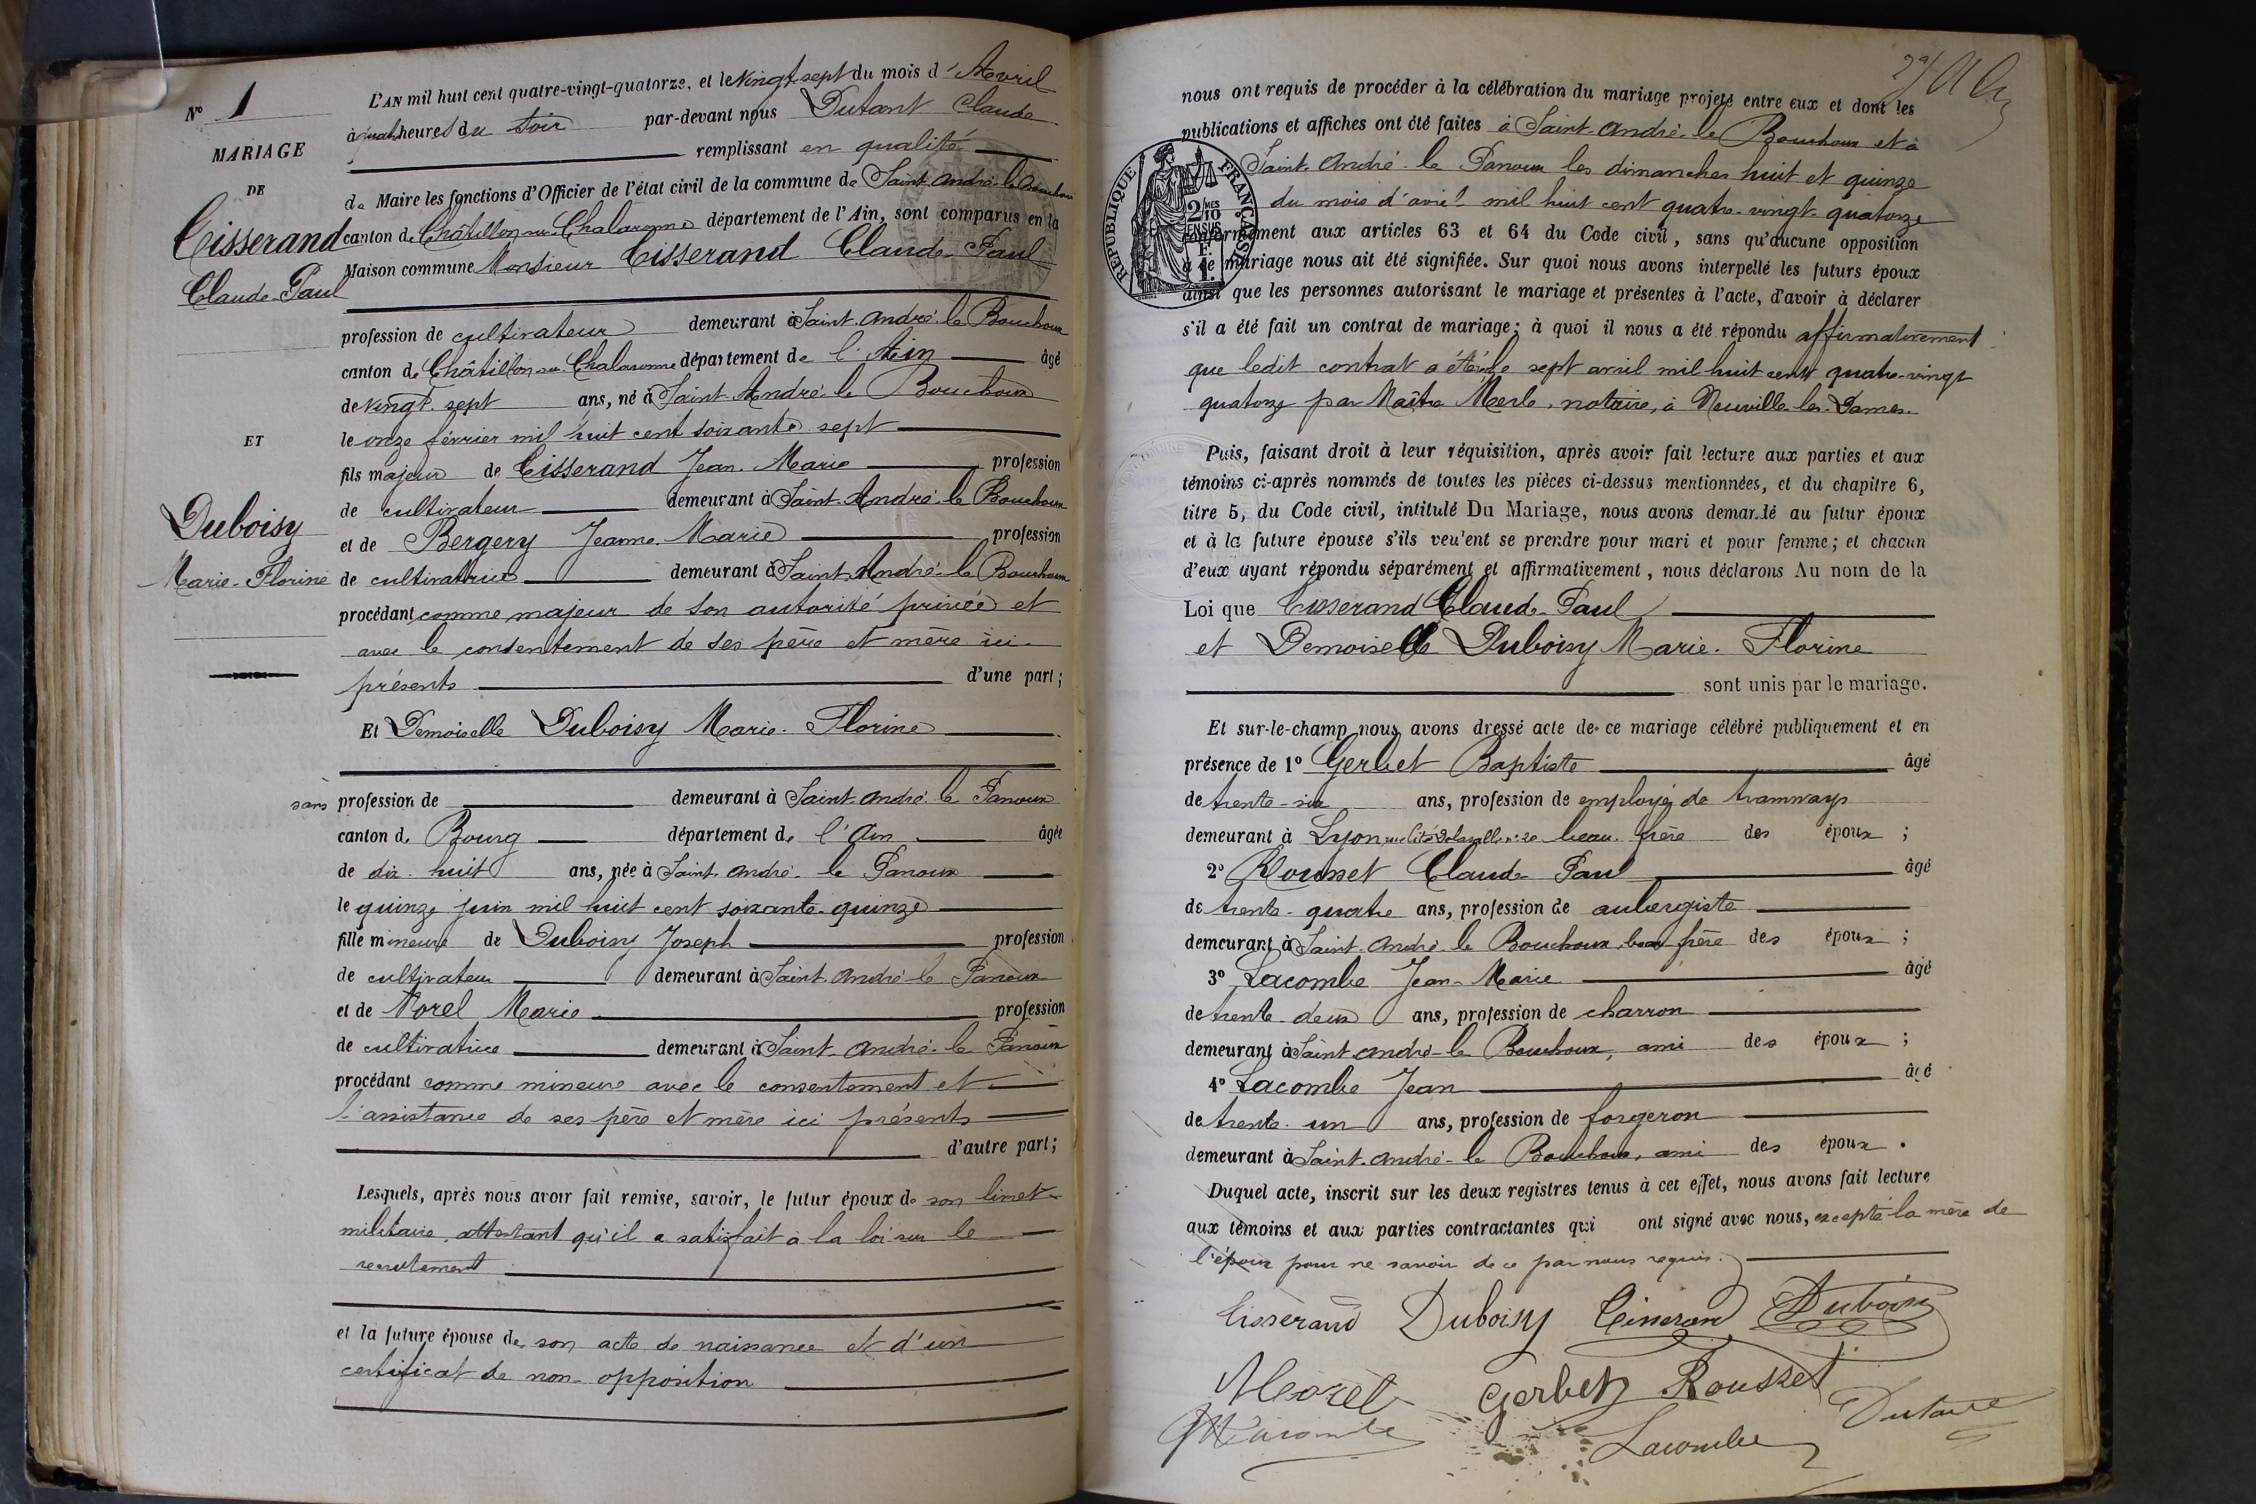 N° 1
MARIAGE
DE
Tisserand
Claude-Paul
ET
Duboisy
Marie-Florine
L'AN mil huit cent quatre-vingt-quatorze, et le vingt-sept du mois d'Avril
à quatre heures du soir par-devant nous Dutant Claude
remplissant en qualité
de Maire les fonctions d'Officier de l'état civil de la commune de Saint-André-le-Bouchoux
canton de Châtillon-sur-Chalaronne département de l'Ain, sont comparus en la
Maison commune Monsieur Tisserand Claude-Paul
profession de cultivateur demeurant à Saint-André-le-Bouchoux
canton de Châtillon-sur-Chalaronne département de l'Ain âgé
de vingt-sept ans, né à Saint-André-le-Bouchoux
le onze février mil huit cent soixante-sept
fils majeur de Tisserand Jean-Marie profession
de cultivateur demeurant à Saint-André-le-Bouchoux
et de Bergery Jeanne-Marie profession
de cultivatrice demeurant à Saint-André-le-Bouchoux
procédant comme majeur de son autorité privée et
avec le consentement de ses père et mère ici
présents d'une part;
Et Demoiselle Duboisy Marie-Florine
sans profession de demeurant à Saint-André-le-Panoux
canton de Bourg département de l'Ain âgée
de dix-huit ans, née à Saint-André-le-Panoux
le quinze juin mil huit cent soixante-quinze
fille mineure de Duboisy Joseph profession
de cultivateur demeurant à Saint-André-le-Panoux
et de Morel Marie profession
de cultivatrice demeurant à Saint-André-le-Panoux
procédant comme mineure avec le consentement et
l'assistance de ses père et mère ici présents
d'autre part;
Lesquels, après nous avoir fait remise, savoir, le futur époux de son livret
militaire attestant qu'il a satisfait à la loi sur le
recrutement
et la future épouse de son acte de naissance et d'un
certificat de non-opposition
nous ont requis de procéder à la célébration du mariage projeté entre eux et dont les
publications et affiches ont été faites à Saint-André-le-Bouchoux et à
Saint-André-le-Panoux les dimanches huit et quinze
du mois d'avril mil huit cent quatre-vingt-quatorze
RÉPUBLIQUE FRANÇAISE
conformément aux articles 63 et 64 du Code civil, sans qu'aucune opposition
à ce mariage nous ait été signifiée. Sur quoi nous avons interpellé les futurs époux
ainsi que les personnes autorisant le mariage et présentes à l'acte, d'avoir à déclarer
s'il a été fait un contrat de mariage; à quoi il nous a été répondu affirmativement
que ledit contrat a été le sept avril mil huit cent quatre-vingt
quatorze par Maître Merle, notaire, à Neuville-les-Dames.
Puis, faisant droit à leur réquisition, après avoir fait lecture aux parties et aux
témoins ci-après nommés de toutes les pièces ci-dessus mentionnées, et du chapitre 6,
titre 5, du Code civil, intitulé Du Mariage, nous avons demandé au futur époux
et à la future épouse s'ils veulent se prendre pour mari et pour femme; et chacun
d'eux ayant répondu séparément et affirmativement, nous déclarons Au nom de la
Loi que Tisserand Claude-Paul
et Demoiselle Duboisy Marie-Florine
sont unis par le mariage.
Et sur-le-champ nous avons dressé acte de ce mariage célébré publiquement et en
présence de 1° Gerbet Baptiste âgé
de trente-six ans, profession de employé de tramways
demeurant à Lyon, n° 20 beau-frère des époux;
2° Rousset Claude-Paul âgé
de trente-quatre ans, profession de aubergiste
demeurant à Saint-André-le-Bouchoux, beau-frère des époux;
3° Lacombe Jean-Marie âgé
de trente-deux ans, profession de charron
demeurant à Saint-André-le-Bouchoux, ami des époux;
4° Lacombe Jean âgé
de trente-un ans, profession de forgeron
demeurant à Saint-André-le-Bouchoux, ami des époux.
Duquel acte, inscrit sur les deux registres tenus à cet effet, nous avons fait lecture
aux témoins et aux parties contractantes qui ont signé avec nous, excepté la mère de
l'époux pour ne savoir de ce par nous requis.
Tisserand Duboisy Tisserand Duboisy
Morel Gerbet Rousset
JM Lacombe Lacombe Dutant